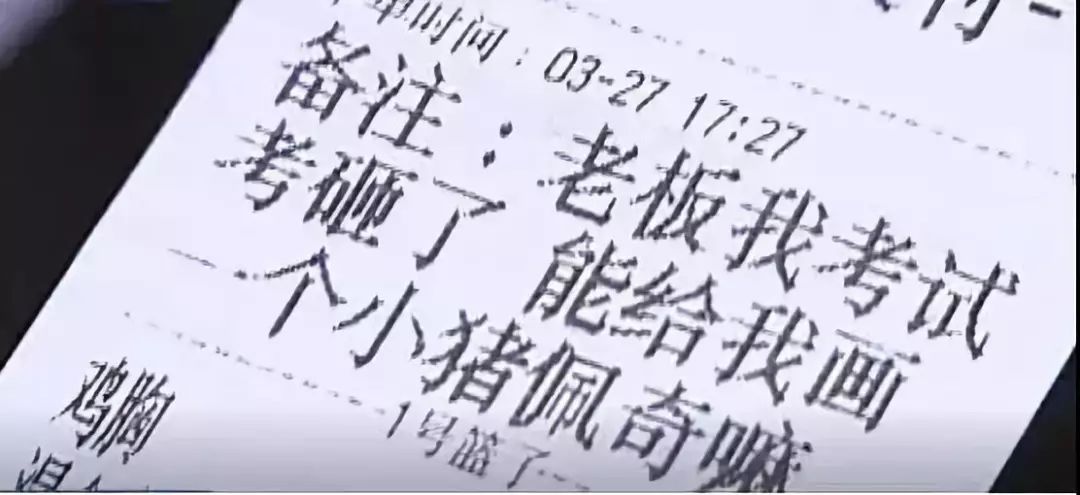 单时间：03-27 17:27
备注：老板我考试
考砸了 能给我画
个小猪佩奇嘛
1号篮了
鸡胸